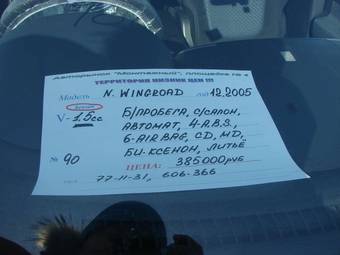 Авторынок "Монтажный", площадка № 4
ТЕРРИТОРИЯ НИЗКИХ ЦЕН !!!
Модель N. WINGROAD год 12.2005
V- 1.5 cc
Б/ПРОБЕГА, С/САЛОН,
АВТОМАТ, 4-A.B.S.,
6-AIR BAG, CD, MD,
БИ-КСЕНОН, ЛИТЬЁ
№ 90 ЦЕНА: 385000 РУБ
77-11-31, 606-366